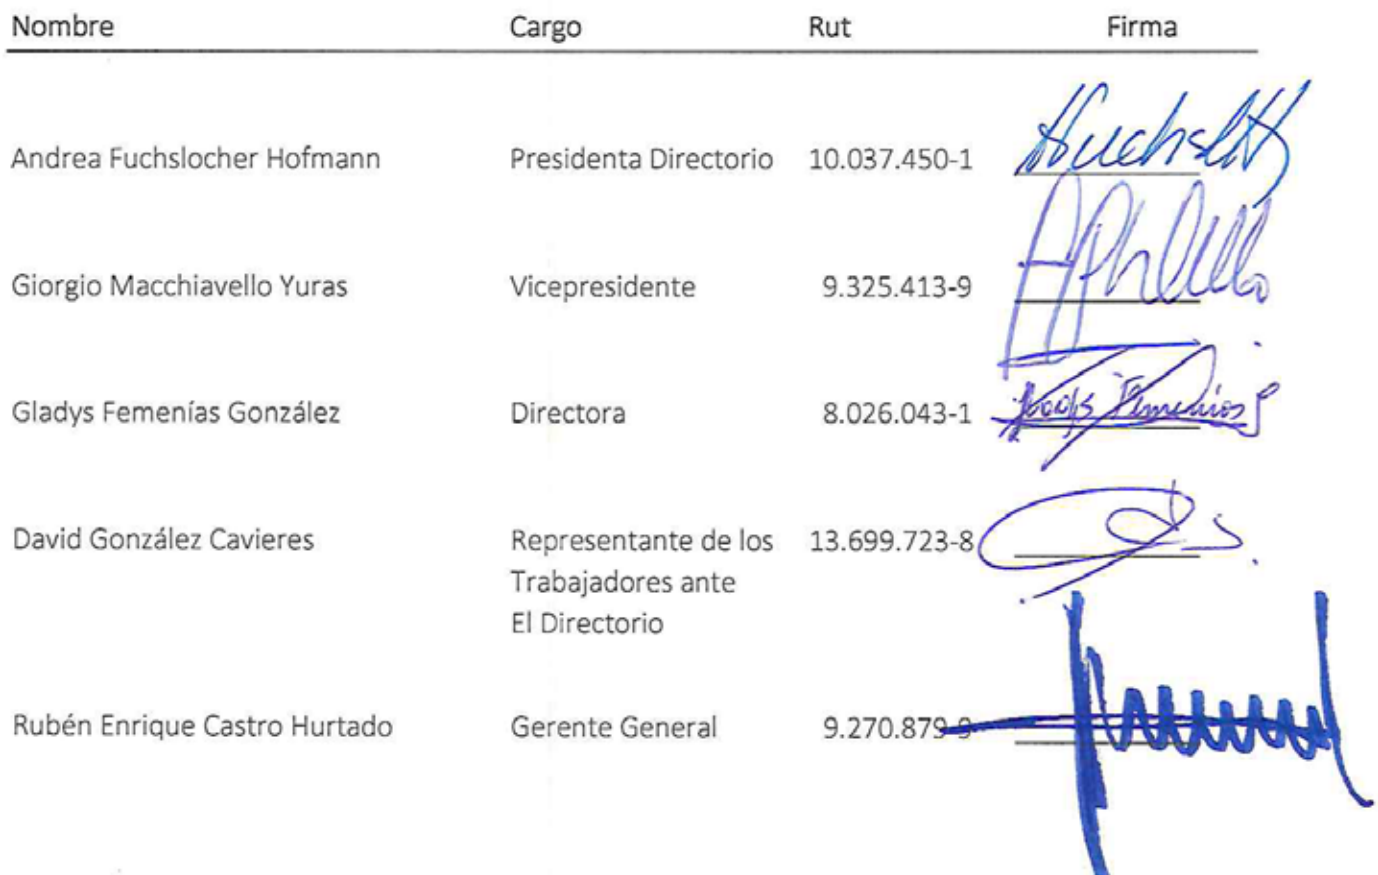 Nombre Cargo Rut Firma
Andrea Fuchslocher Hofmann Presidenta Directorio 10.037.450-1
Giorgio Macchiavello Yuras Vicepresidente 9.325.413-9
Gladys Femenías González Directora 8.026.043-1
David González Cavieres Representante de los 13.699.723-8
Trabajadores ante
El Directorio
Rubén Enrique Castro Hurtado Gerente General